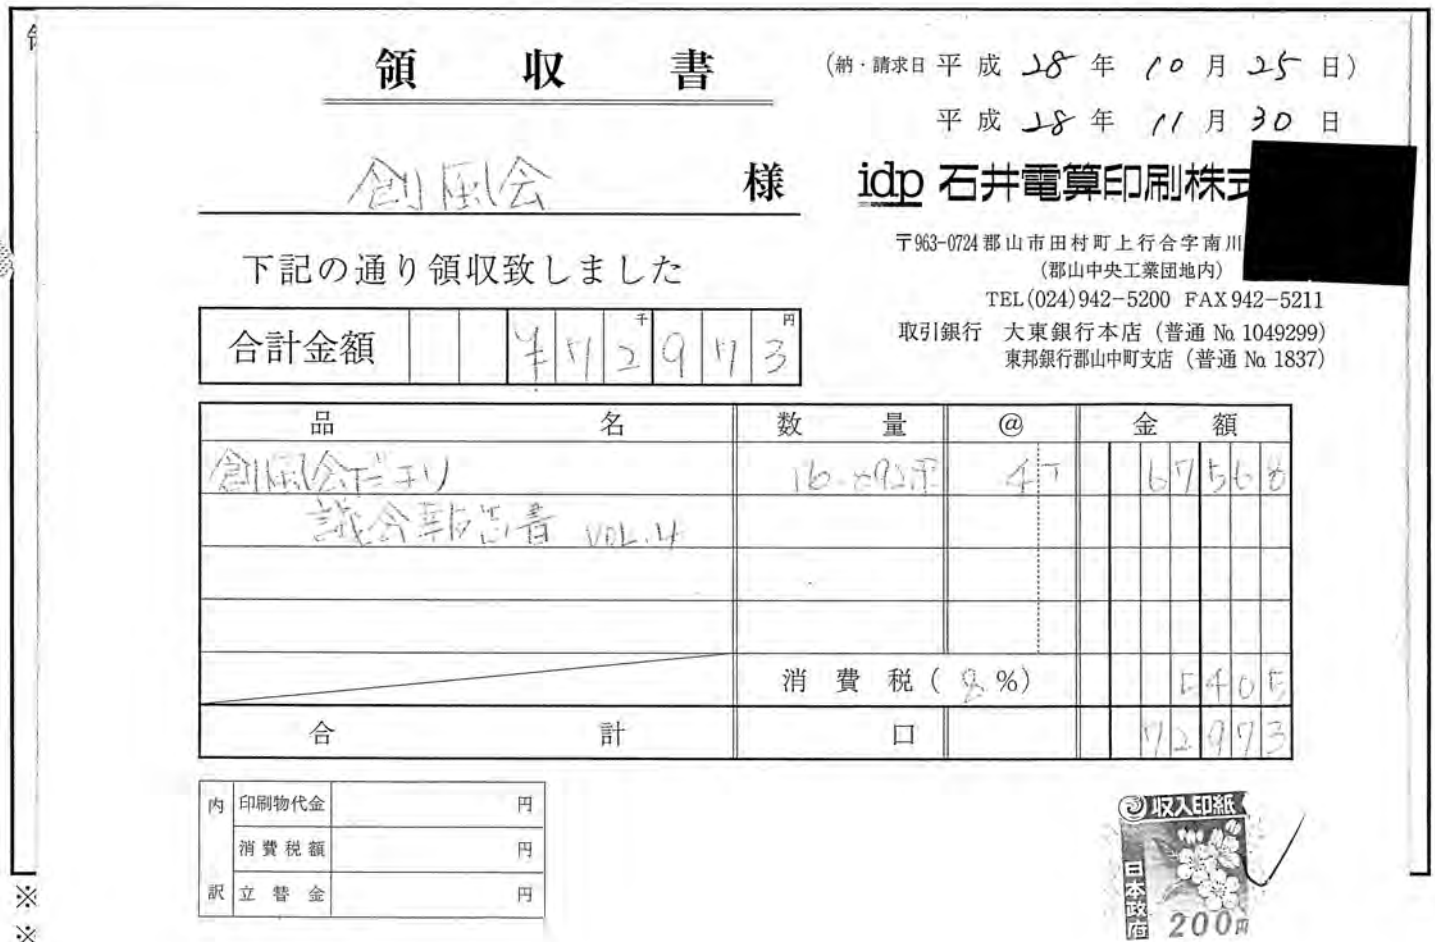 領収書
(納・請求日 平成 28 年 10 月 25 日)
平成 28 年 11 月 30 日
創風会 様
idp 石井電算印刷株式
〒963-0724 郡山市田村町上行合字南川
(郡山中央工業団地内)
TEL(024)942-5200 FAX 942-5211
取引銀行 大東銀行本店 (普通 № 1049299)
東邦銀行郡山中町支店 (普通 № 1837)
下記の通り領収致しました
合計金額 ¥72千973円
品名 数量 @ 金額
創風会だより 4 67568
議会報告書 VOL.4
消費税(8%) 5405
合計 口 72973
内訳
印刷物代金 円
消費税額 円
立替金 円
収入印紙
日本政府
200円
※
※